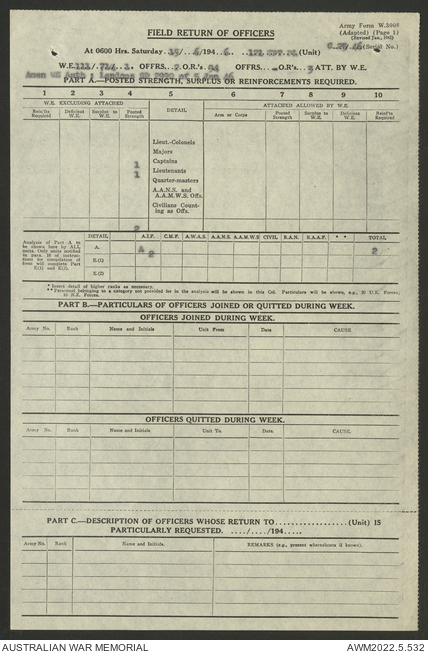 Army Form W.3008
(Adapted) (Page 1)
FIELD RETURN OF OFFICERS
At 0600 Hrs. Saturday 15/ 6/194 6. (Unit) (Serial No.)
W.E. OFFRS. 2 O.R's. 24 OFFRS. O.R's 3 ATT. BY W.E.
PART A.—POSTED STRENGTH, SURPLUS OR REINFORCEMENTS REQUIRED.
1 2 3 4 5 6 7 8 9 10
W.E. EXCLUDING ATTACHED DETAIL ATTACHED ALLOWED BY W.E.
Reinf'ts Required Deficient W.E. Surplus to W.E. Posted Strength Arm or Corps Posted Strength Surplus to W.E. Deficient W.E. Reinf'ts Required
Lieut.-Colonels
Majors
1 Captains
1 Lieutenants
Quarter-masters
A.A.N.S. and
A.A.M.W.S. Offs.
Civilians Count-
ing as Offs.
2
DETAIL A.I.F. C.M.F. A.W.A.S. A.A.N.S. A.A.M.W.S. CIVIL R.A.N. R.A.A.F. * * TOTAL
Analysis of Part A to
be shown here by ALL
units. Only units notified
in para. 16 of instruc-
tions for compilation of
form will complete Part
E(1) and E(2).
A. A 2 2
E.(1)
E.(2)
* Insert detail of higher ranks as necessary.
** Personnel belonging to a category not provided for in the analysis will be shown in this Col. Particulars will be shown, e.g., 20 U.K. Forces;
10 N.Z. Forces.
PART B.—PARTICULARS OF OFFICERS JOINED OR QUITTED DURING WEEK.
OFFICERS JOINED DURING WEEK.
Army No. Rank Name and Initials Unit From Date CAUSE.
OFFICERS QUITTED DURING WEEK.
Army No. Rank Name and Initials Unit To. Date. CAUSE.
PART C.—DESCRIPTION OF OFFICERS WHOSE RETURN TO..................(Unit) IS
PARTICULARLY REQUESTED. ..../..../194.....
Army No. Rank Name and Initials. REMARKS (e.g., present whereabouts if known).
AUSTRALIAN WAR MEMORIAL AWM2022.5.532